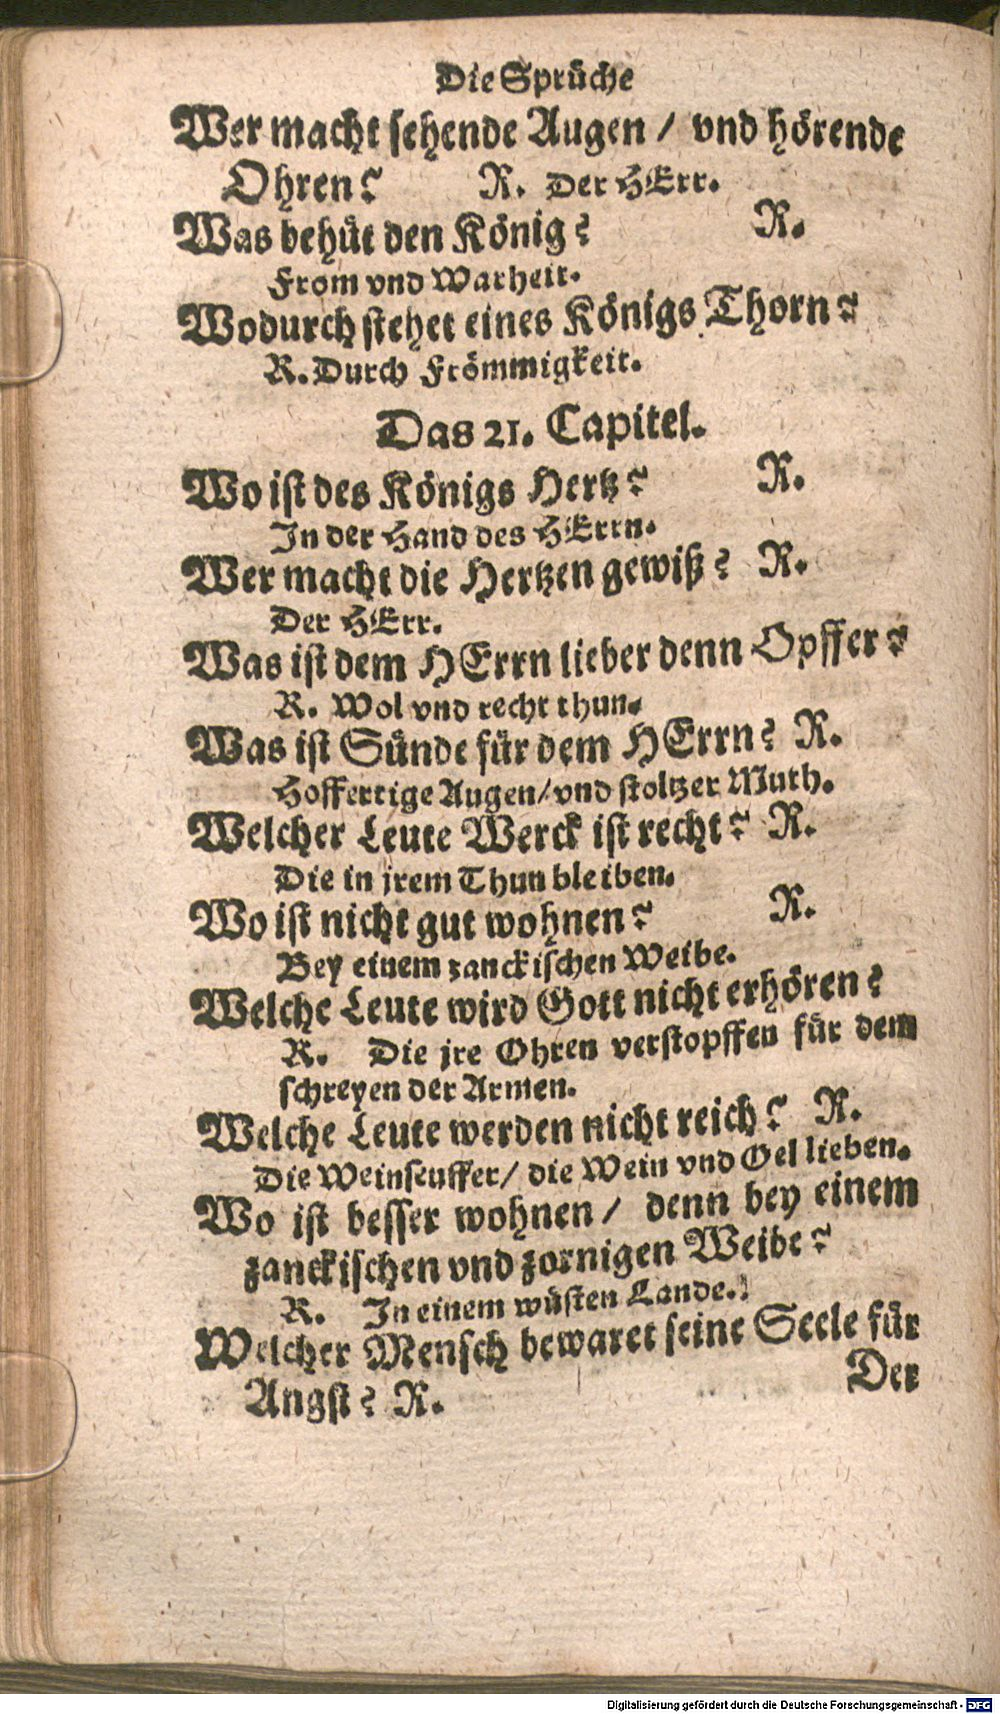 Die Sprüche
Wer macht sehende Augen / vnd hörende
Ohren? R. Der HErr.
Was behüt den König? R.
From vnd Warheit.
Wodurch stehet eines Königs Thorn?
R. Durch Frömmigkeit.
Das 21. Capitel.
Wo ist des Königs Hertz? R.
In der Hand des HErrn.
Wer macht die Hertzen gewiß? R.
Der HErr.
Was ist dem HErrn lieber denn Opffer?
R. Wol vnd recht thun.
Was ist Sünde für dem HErrn? R.
Hoffertige Augen/ vnd stoltzer Muth.
Welcher Leute Werck ist recht? R.
Die in jrem Thun bleiben.
Wo ist nicht gut wohnen? R.
Bey einem zanckischen Weibe.
Welche Leute wird Gott nicht erhören?
R. Die jre Ohren verstopffen für dem
schreyen der Armen.
Welche Leute werden nicht reich? R.
Die Weinseuffer/ die Wein vnd Oel lieben.
Wo ist besser wohnen / denn bey einem
zanckischen vnd zornigen Weibe?
R. In einem wüsten Lande.
Welcher Mensch bewaret seine Seele für
Angst? R.
Der
Digitalisierung gefördert durch die Deutsche Forschungsgemeinschaft - DFG